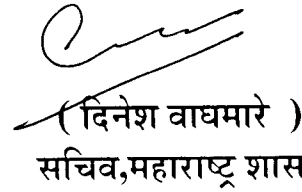 ( दिनेश वाघमारे )
सचिव,महाराष्ट्र शास